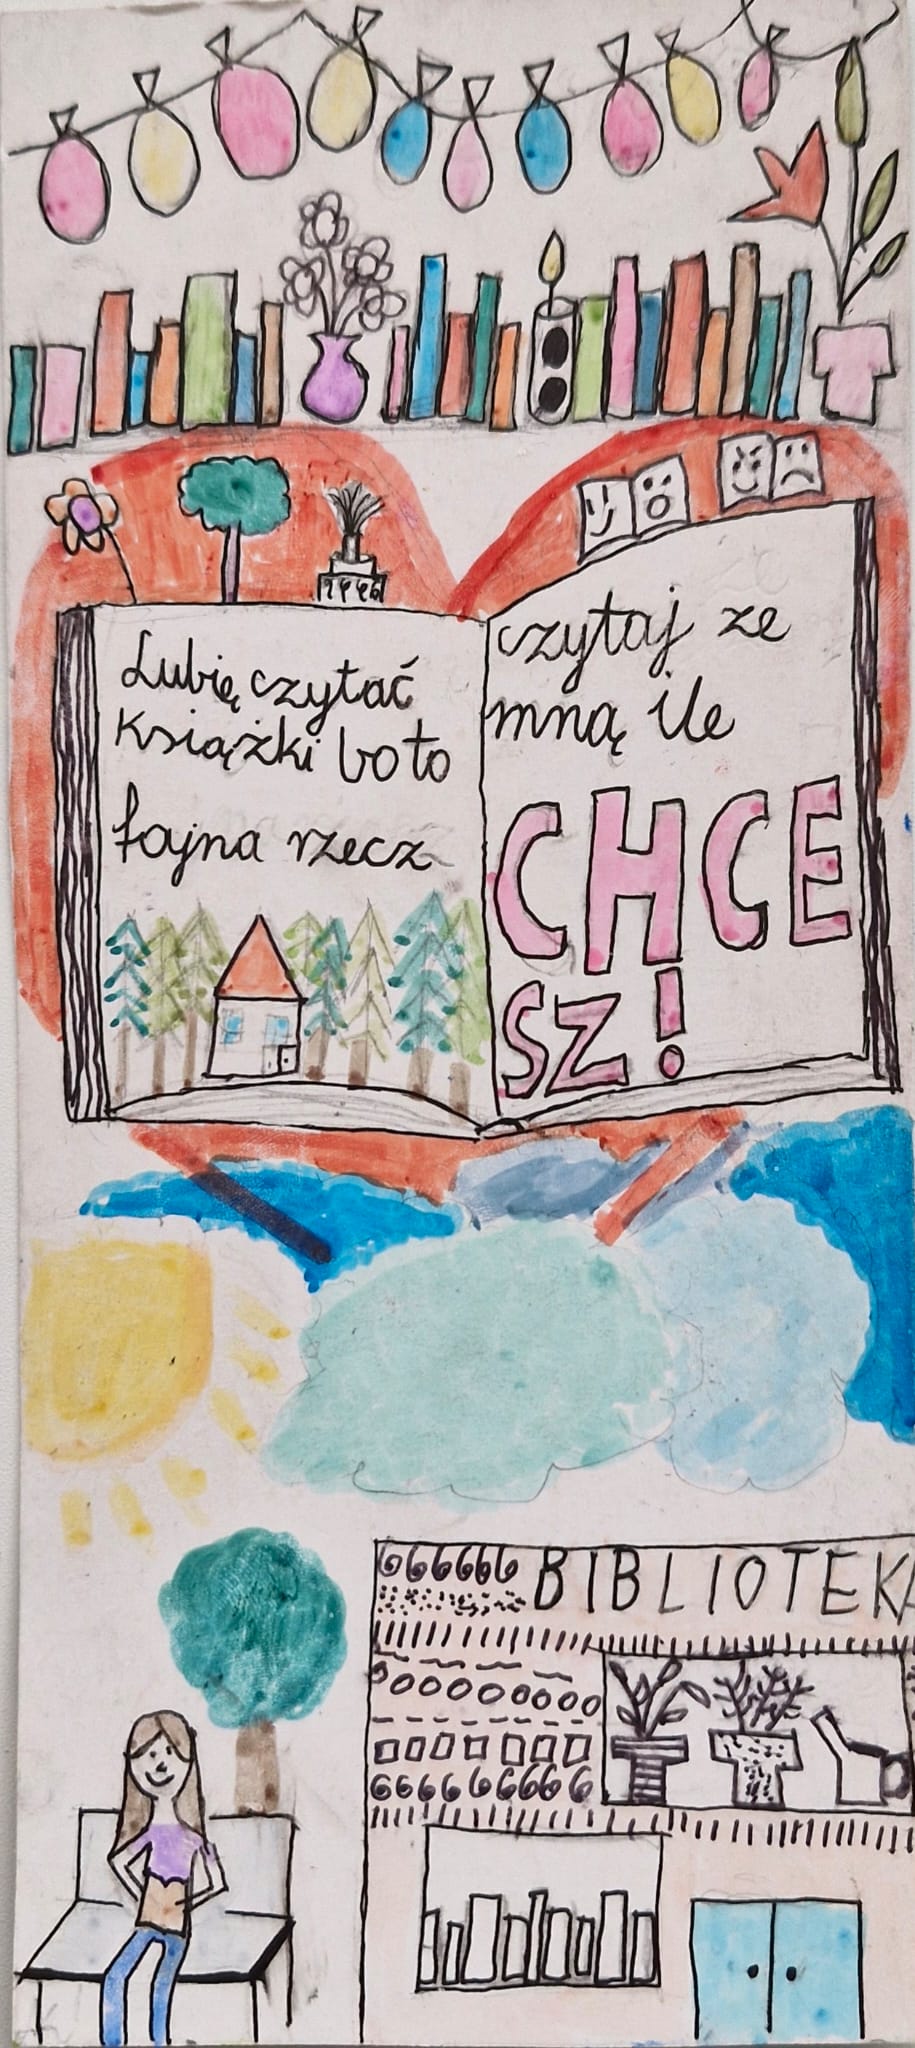 Lubię czytać
książki bo to
fajna rzecz
czytaj ze
mną ile
CHCE
SZ!
BIBLIOTEKA